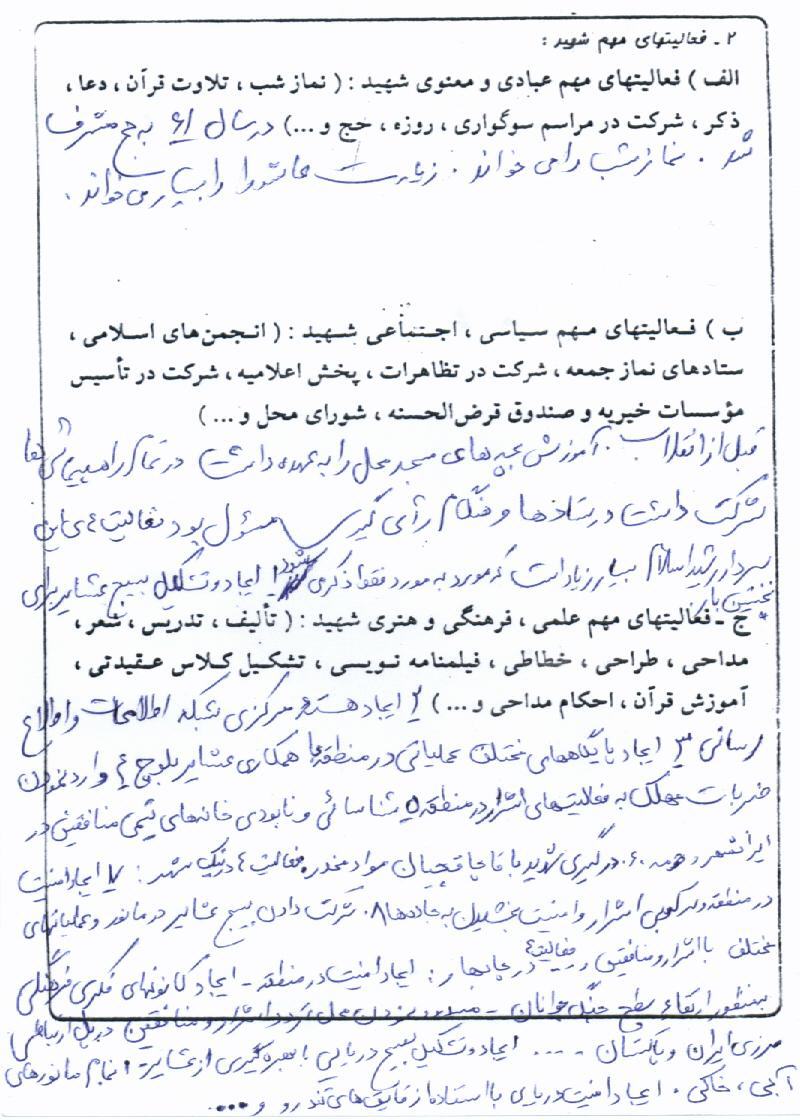 ۲ ـ فعالیتهای مهم شهید :
الف ) فعالیتهای مهم عبادی و معنوی شهید : ( نماز شب ، تلاوت قرآن ، دعا ،
ذکر ، شرکت در مراسم سوگواری ، روزه ، حج و ...) در سال ۶۱ به حج مشرف
شد . نماز شب را می خواند . زیارت عاشورا را بسیار می خواند .
ب ) فـعالیتهای مـهم سـیاسی ، اجـتماعی شـهید : ( انـجمن‌های اسـلامی ،
ستادهای نماز جمعه ، شرکت در تظاهرات ، پخش اعلامیه ، شرکت در تأسیس
مؤسسات خیریه و صندوق قرض‌الحسنه ، شورای محل و ... )
قبل از انقلاب . آموزش بچه های مسجد محل را به عهده داشت در تمام راهپیمائی ها
شرکت داشت در ستادها و هنگام رأی گیری مسئول بود فعالیت های این
سردار رشید اسلام بسیار زیاد است که مورد به مورد فقط ذکر می شود ۱ـ ایجاد و تشکیل بسیج عشایر برای
نخستین بار
ج ـ فعالیتهای مهم علمی ، فرهنگی و هنری شهید : ( تألیف ، تدریس ، شعر ،
مداحی ، طراحی ، خطاطی ، فیلمنامه نـویسی ، تشکـیل کـلاس عـقیدتی ،
آموزش قرآن ، احکام مداحی و ... ) ۲ـ ایجاد هسته مرکزی شبکه اطلاعات و اطلاع
رسانی ۳ـ ایجاد پایگاههای مختلف عملیاتی در منطقه با همکاری عشایر بلوچ ۴ـ وارد نمودن
ضربات مهلک به فعالیتهای اشرار در منطقه ۵ـ شناسائی و نابودی خانه‌های تیمی منافقین در
ایرانشهر و حومه ۶. درگیری شدید با قاچاقچیان مواد مخدر فعالیت ها در نیک شهر : ۷ـ ایجاد امنیت
در منطقه و سرکوبی اشرار و امنیت بخشیدن به جاده‌ها ۸. شرکت دادن بسیج عشایر در مانور و عملیاتهای
مختلف با اشرار و منافقین . فعالیتها در چابهار : ایجاد امنیت در منطقه ـ ایجاد کانونهای فکری فرهنگی
بمنظور ارتقاء سطح جوانان ـ مسدود نمودن محل تردد اشرار و منافقین در پل ارتباطی
مرزی ایران و پاکستان ـ ... ایجاد و تشکیل بسیج دریایی با بهره گیری از عشایر ـ انجام مانورهای
آبی ، خاکی . ایجاد امنیت دریای با استفاده از قایق های تندرو و ....